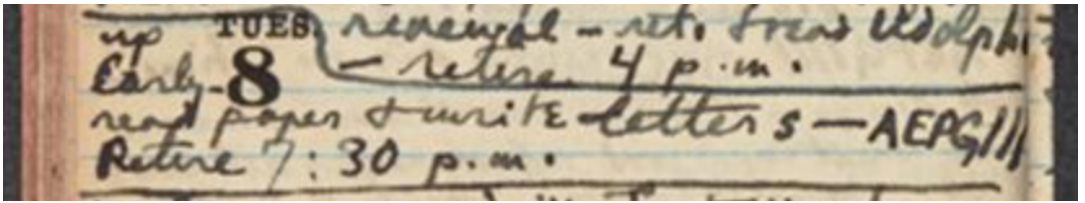 up TUES. renewal - ret. from Adolphi
Early - 8 - retire 4 p.m.
read paper & write letters - AEPG///
Retire 7:30 p.m.